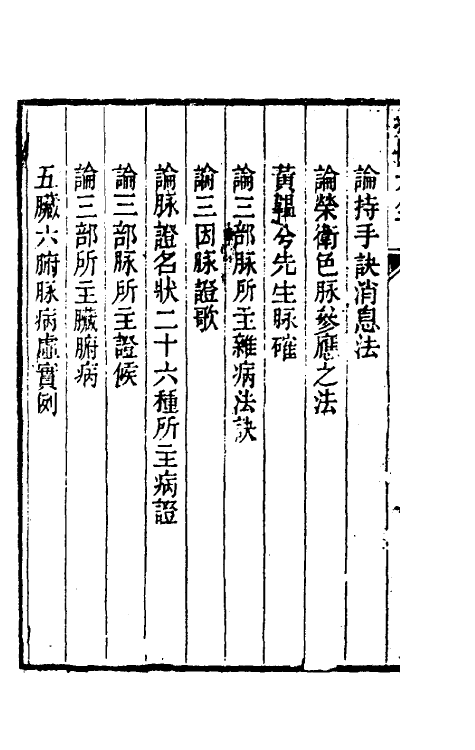 論持手訣消息法
論榮衛色脉參應之法
黃韞兮先生脉確
論三部脉所主雜病法訣
論三因脉證歌
論脉證名狀二十六種所主病證
論三部脉所主證候
論三部所主臟腑病
五臟六腑脉病虛實例